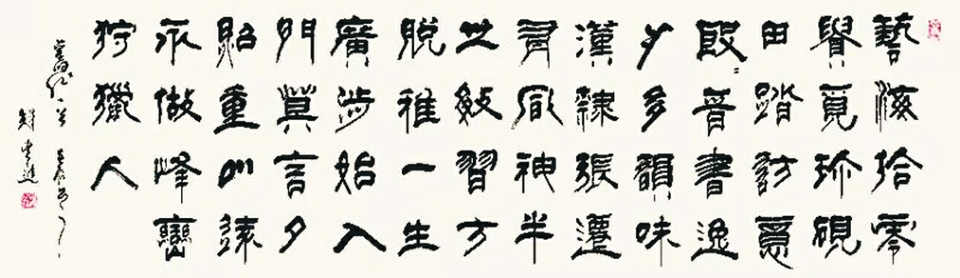 藝海拾零
覓珍硯
田踏勘意
殷〻晉書逸
少多韻味
漢隸張遷
有風神半
世敩習方
脫稚一生
廣涉始入
門莫言夕
貽重山遠
永做峰巒
狩獵人